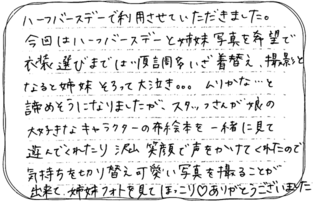 ハーフバースデーで利用させていただきました。
今回はハーフバースデーと姉妹写真を希望で
衣装選びまでは順調♪いざ着替え、撮影と
なると姉妹そろって大泣き。。。ムリかな…と
諦めそうになりましたが、スタッフさんが娘の
大好きなキャラクターの布絵本を一緒に見て
遊んでくれたり沢山笑顔で声をかけてくれたので
気持ちを切り替え可愛い写真を撮ることが
出来て、姉妹フォトを見てほっこり♡ありがとうございました